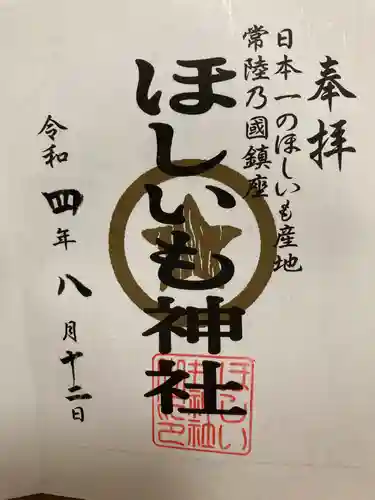 奉拝
日本一のほしいも産地
常陸乃國鎮座
ほしいも神社
令和四年八月十二日